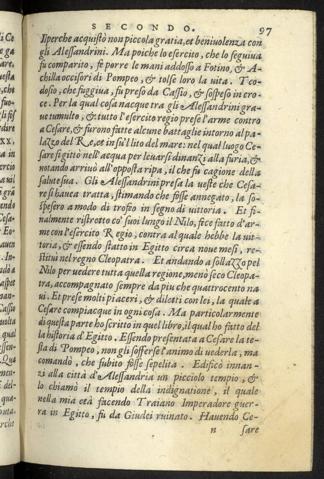 SECONDO. 97
Ilperche acquistò non piccola gratia, et beniuolenza con
gli Alessandrini. Ma poiche lo esercito, che lo seguiua
fu comparito, fe porre le mani addosso a Fotino, & A-
chilla occisori di Pompeo, & tolse loro la uita. Teo-
dosio, che fuggiua, fu preso da Cassio, & sospeso in cro-
ce. Per la qual cosa nacque tra gli Alessandrini gra-
ue tumulto, & tutto l'esercito regio prese l'arme contro
a Cesare, & furono fatte alcune battaglie intorno al pa-
lazzo del Re, et in su'l lito del mare: nel qual luogo Ce-
sare si gittò nell'acqua per leuarsi dinanzi alla furia, &
notando arriuò all'opposta ripa, il che fu cagione della
salute sua. Gli Alessandrini presa la ueste che Cesa-
re si haueua tratta, stimando che fosse annegato, la so-
spesero a modo di trofeo in segno di uittoria. Et fi-
nalmente ristretto co' suoi lungo il Nilo, fece fatto d'ar-
me con l'esercito Regio, contra al quale hebbe la uit-
toria, & essendo stato in Egitto circa noue mesi, re-
stituì nel regno Cleopatra. Et andando a sollazzo pel
Nilo per uedere tutta quella regione, menò seco Cleopa-
tra, accompagnato sempre da piu che quattrocento na
ui. Et prese molti piaceri, & diletti con lei, la quale a
Cesare compiacque in ogni cosa. Ma particolarmente
di questa parte ho scritto in quel libro, il qual ho fatto del
la historia d'Egitto. Essendo presentata a Cesare la te-
sta di Pompeo, non gli sofferse l'animo di uederla, ma
comandò, che subito fosse sepelita. Edificò innan-
zi alla città d'Alessandria un picciolo tempio, &
lo chiamò il tempio della indignatione, il quale
nella mia età facendo Traiano Imperadore guer-
ra in Egitto, fu da Giudei ruinato. Hauendo Ce-
n sare